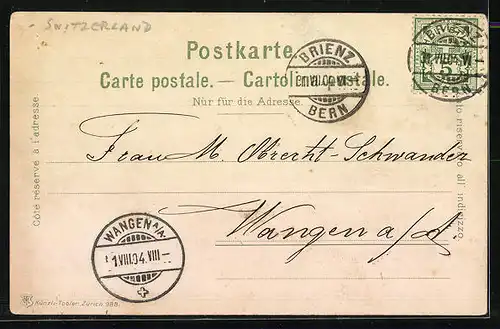 - SWITZERLAND
Postkarte.
Carte postale. — Cartolina postale.
Nur für die Adresse.
BRIENZ
BERN
BRIENZ
5
BERN
Côté réservé à l'adresse
Lato riservato all' indirizzo
Frau M. Obrecht-Schwander
Wangen a/A.
WANGEN A/A.
1.VIII.04.VIII-
Künzli-Tobler, Zürich